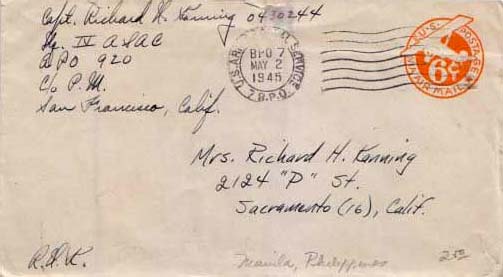 Capt. Richard H. Kanning 0430244
Hq. IV ASAC
APO 920
c/o P.M.
San Francisco, Calif.
U.S. ARMY POSTAL SERVICE
BPO 7
MAY 2
1945
7 B.P.O.
U.S. POSTAGE
6¢
VIA AIR MAIL
Mrs. Richard H. Kanning
2124 "P" St.
Sacramento (16), Calif.
R.H.K.
Manila, Philippines